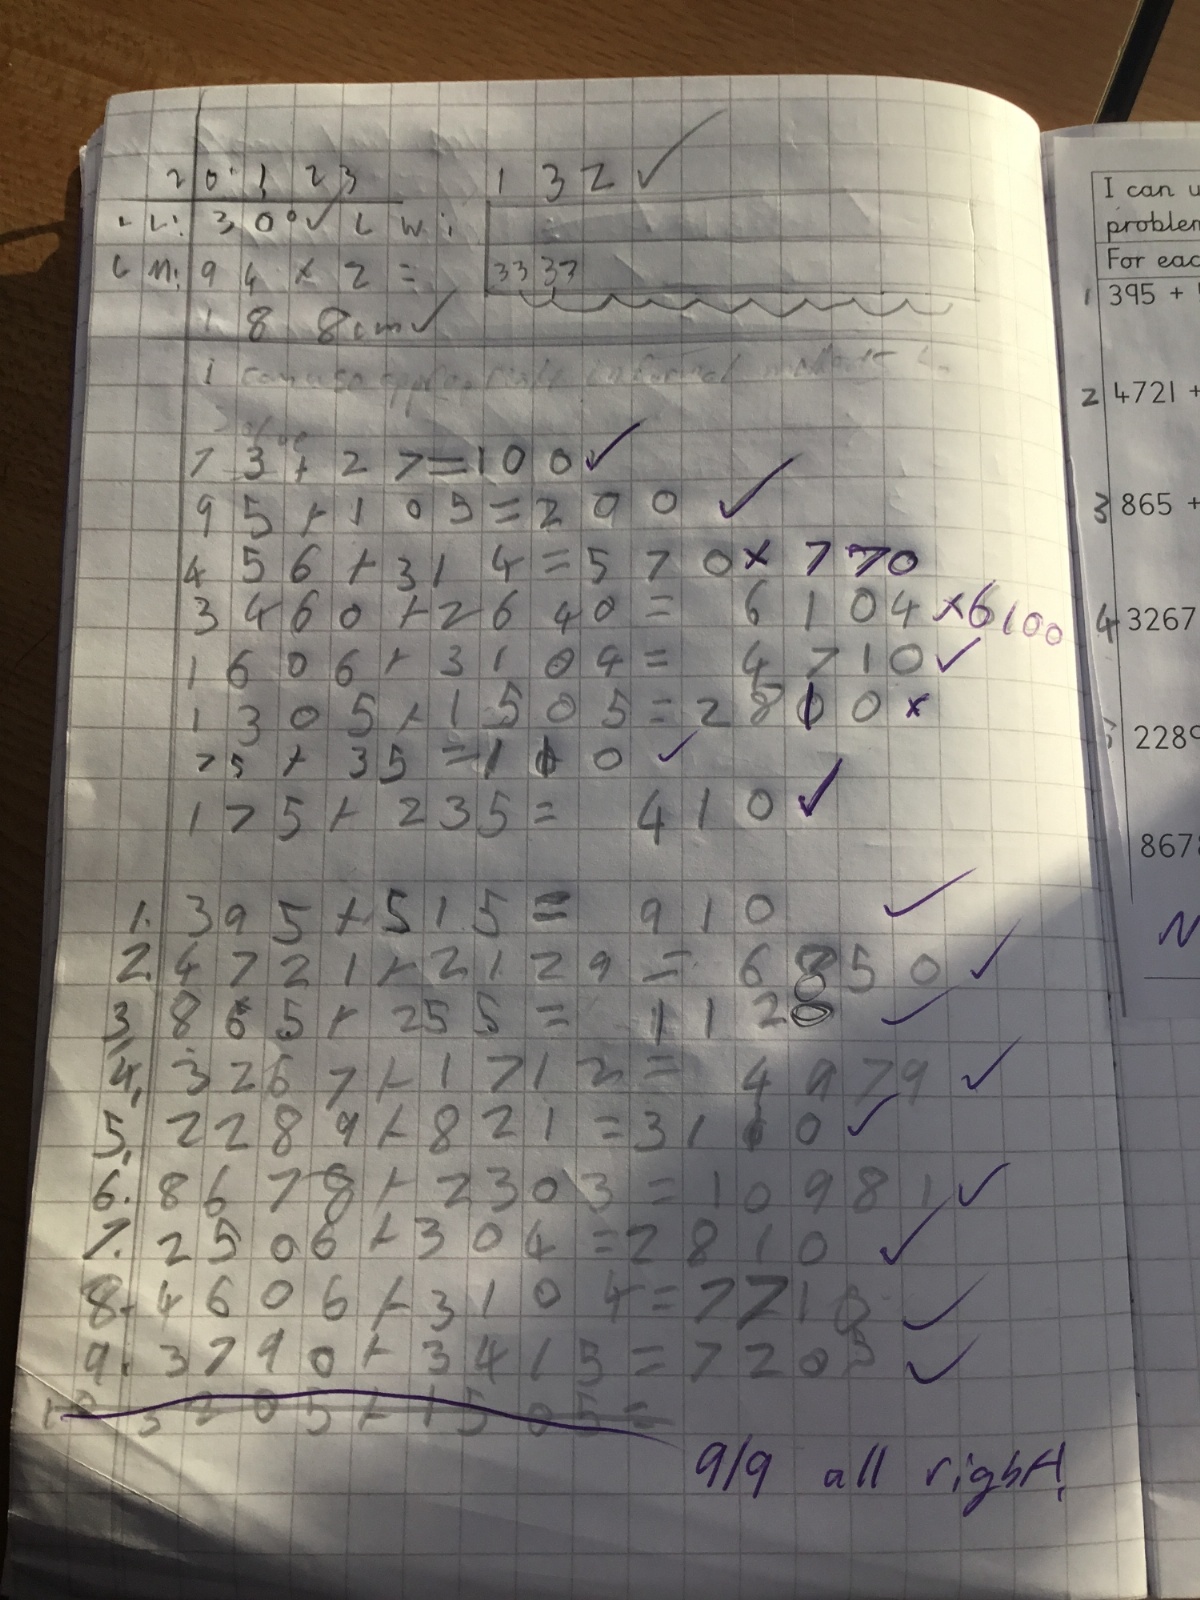 20.1.23
132 ✓
L W: 30° ✓ L W:
L M: 94 x 2 =
3333
188cm ✓
I can use appropriate informal methods
73+27=100 ✓
95+105=200 ✓
456+314=570 x 770
3460+2640= 6104 x 6100
1606+3104= 4710 ✓
1305+1505=2810 x
75+35=110 ✓
175+235= 410 ✓
1. 395+515= 910 ✓
2. 4721+2129= 6850 ✓
3. 865+255= 1120 ✓
4. 3267+1712= 4979 ✓
5. 2289+821=3110 ✓
6. 8678+2303=10981 ✓
7. 2506+304=2810 ✓
8. 4606+3104=7710 ✓
9. 3790+3415=7205 ✓
3205+1505=
9/9 all right!
I can
problem
For eac
1 395 +
2 4721 +
3 865 +
4 3267
5 2289
8678
N